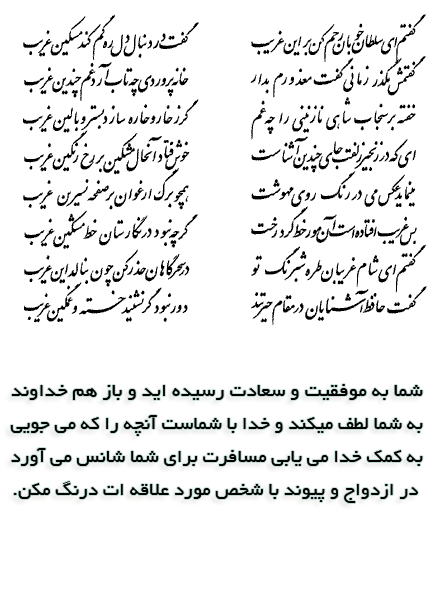 گفتم ای سلطان خوبان رحم کن بر این غریب گفت در دنبال دل ره گم کند مسکین غریب
گفتمش مگذر زمانی گفت معذورم بدار خانه پروردی چه تاب آرد غم چندین غریب
خفته بر سنجاب شاهی نازنینی را چه غم گر ز خار و خاره سازد بستر و بالین غریب
ای که در زنجیر زلفت جای چندین آشناست خوش فتاد آن خال مشکین بر رخ رنگین غریب
مینماید عکس می در رنگ روی مهوشت همچو برگ ارغوان بر صفحه نسرین غریب
بس غریب افتاده است آن مور خط گرد رخت گرچه نبود در نگارستان خط مشکین غریب
گفتم ای شام غریبان طره شبرنگ تو در سحرگاهان حذر کن چون بنالد این غریب
گفت حافظ آشنایان در مقام حیرتند دور نبود گر نشیند خسته و غمگین غریب
شما به موفقیت و سعادت رسیده اید و باز هم خداوند
به شما لطف میکند و خدا با شماست آنچه را که می جویی
به کمک خدا می یابی مسافرت برای شما شانس می آورد
در ازدواج و پیوند با شخص مورد علاقه ات درنگ مکن.